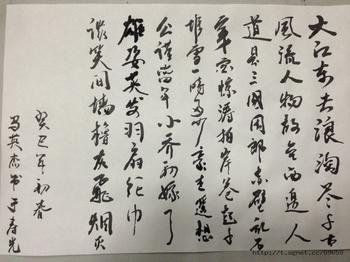 大江东去浪淘尽千古
风流人物故垒西边人
道是三國周郎赤壁乱石
穿空惊涛拍岸卷起千
堆雪一時多少豪杰遥想
公瑾當年小乔初嫁了
雄姿英发羽扇纶巾
谈笑间樯橹灰飞烟灭
癸巳年初春
马英杰书于寿光
http://t.sgnet.cc/69059